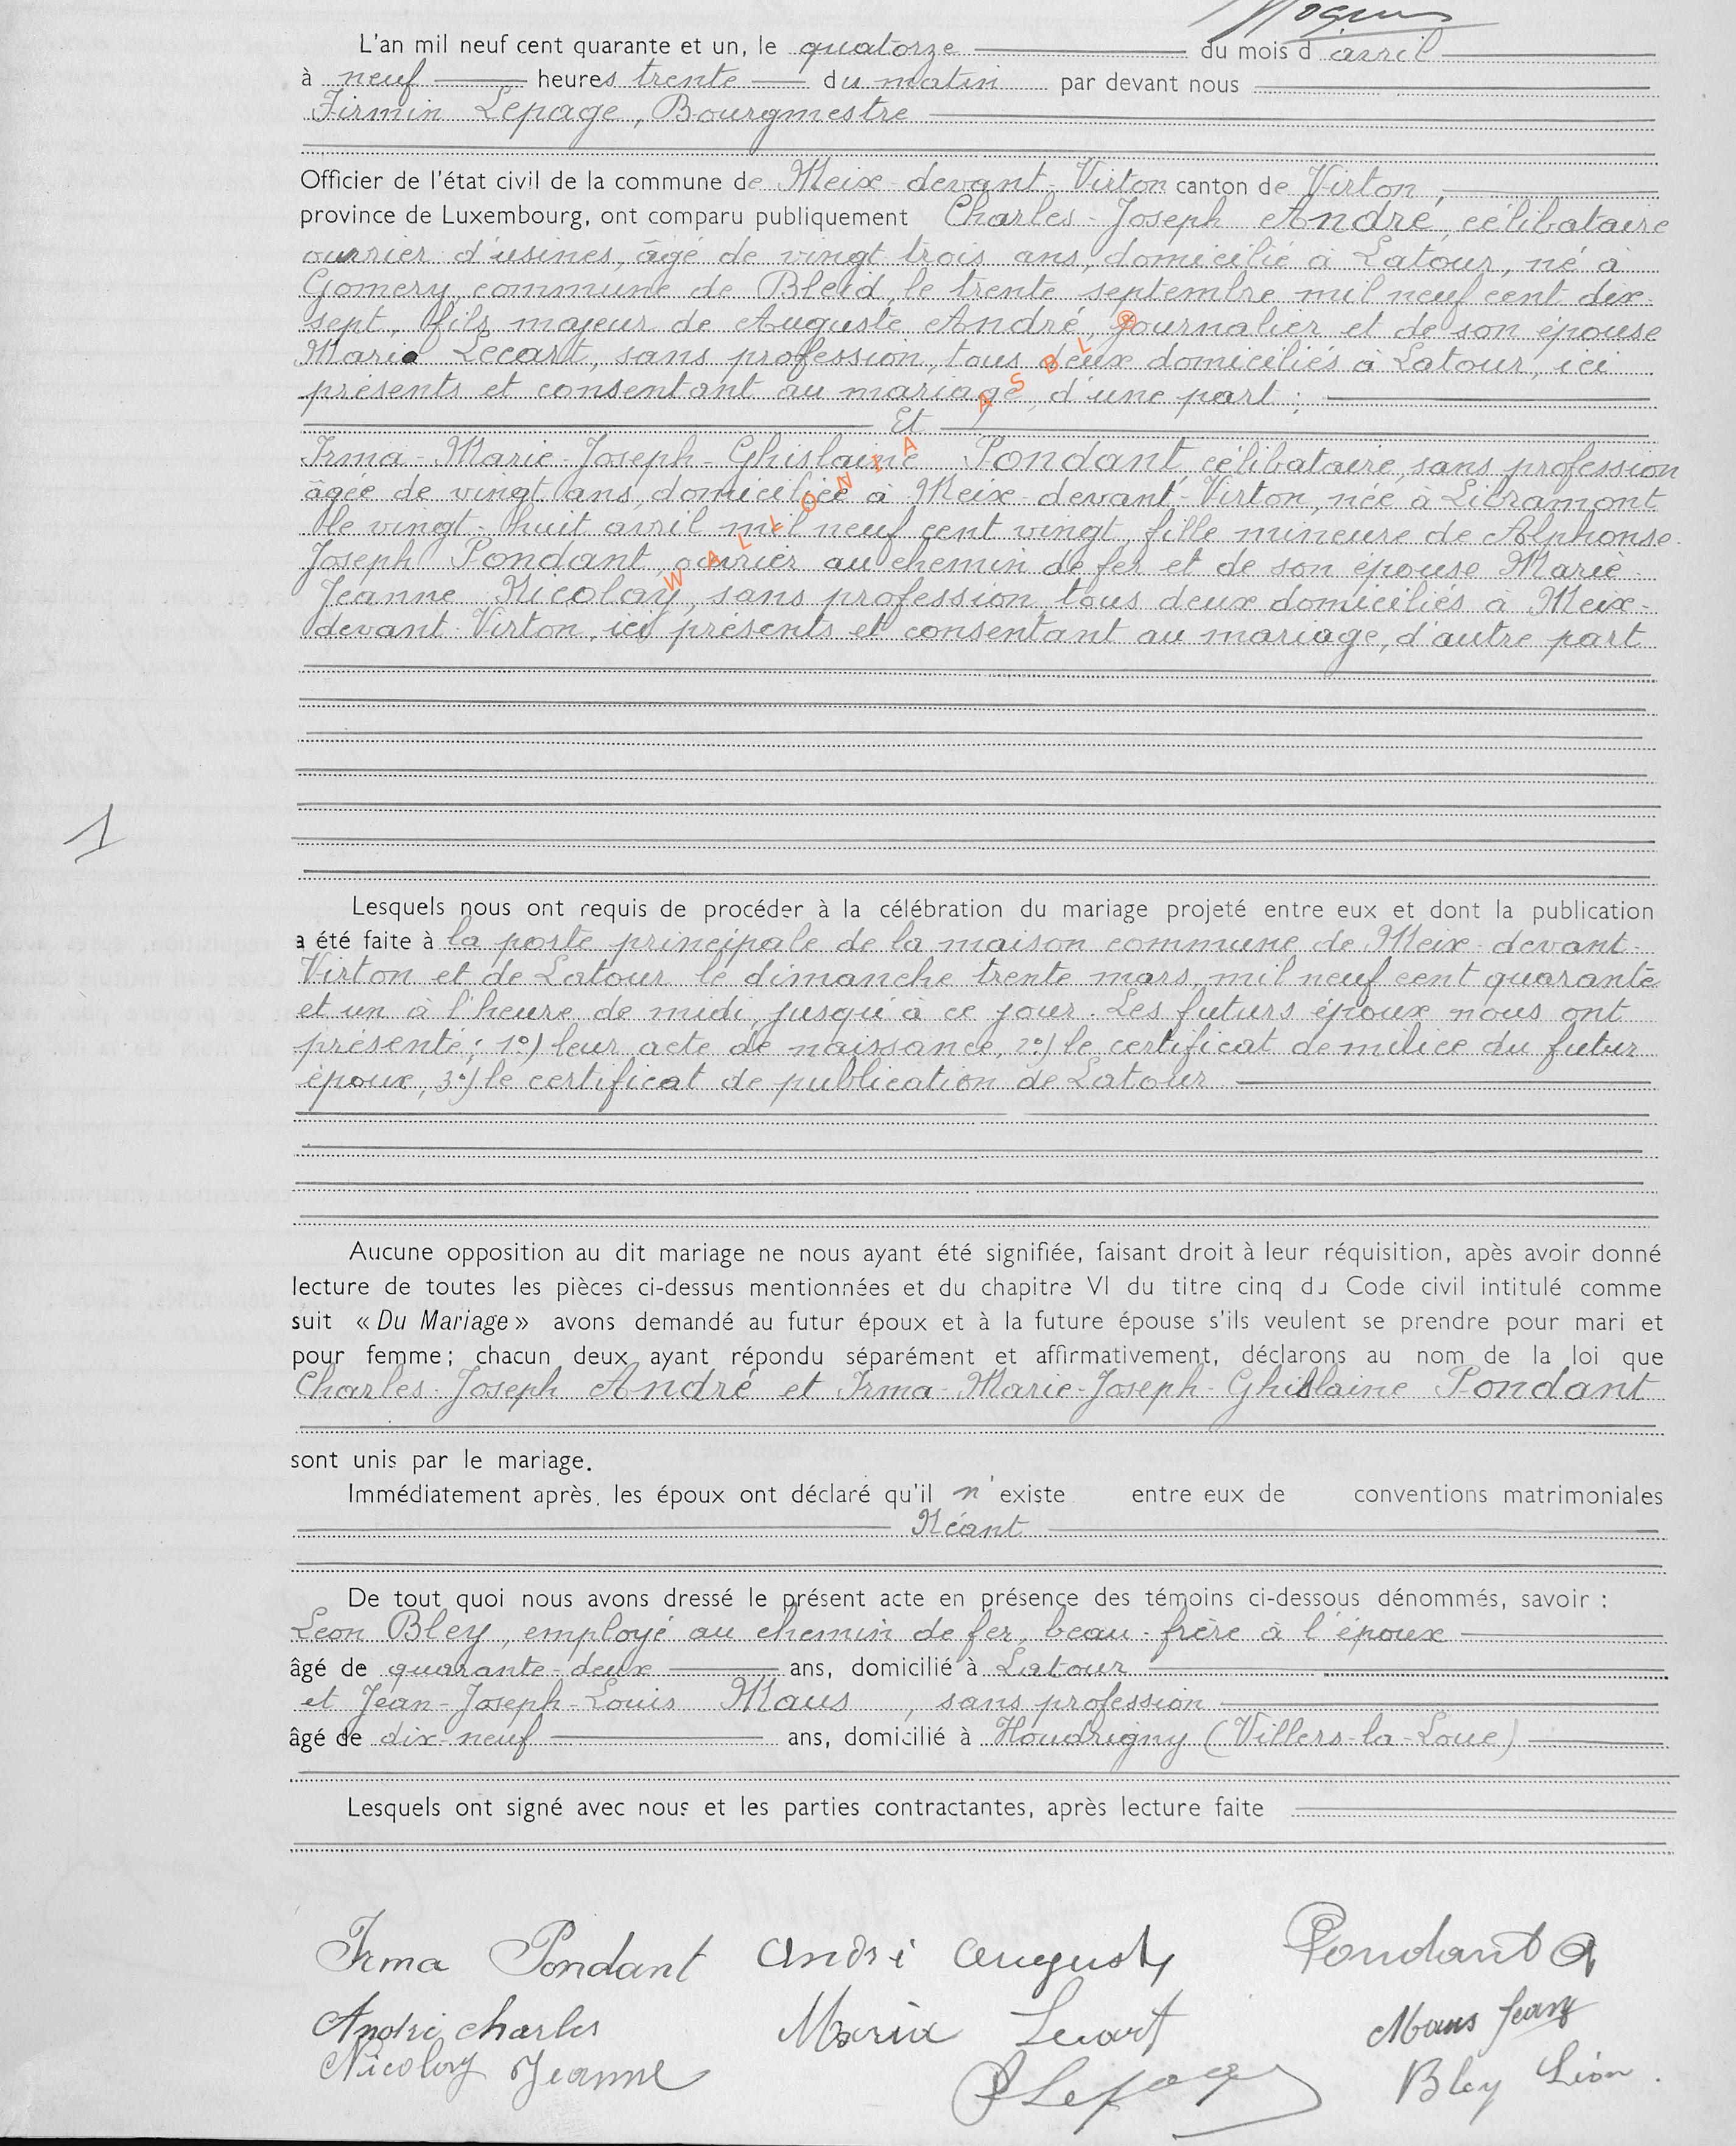 L'an mil neuf cent quarante et un, le quatorze du mois d'avril
à neuf heures trente du matin par devant nous
Firmin Lepage, Bourgmestre
Officier de l'état civil de la commune de Meix-devant-Virton canton de Virton,
province de Luxembourg, ont comparu publiquement Charles-Joseph André, célibataire
ouvrier d'usines, âgé de vingt trois ans, domicilié à Latour, né à
Gomery, commune de Bleid, le trente septembre mil neuf cent dix-
sept, fils majeur de Auguste André, journalier et de son épouse
Maria Lecart, sans profession, tous deux domiciliés à Latour, ici
présents et consentant au mariage, d'une part ;
Et
Irma-Marie-Joseph-Ghislaine Pondant, célibataire, sans profession
âgée de vingt ans, domiciliée à Meix-devant-Virton, née à Libramont
le vingt-huit avril mil neuf cent vingt, fille mineure de Alphonse-
Joseph Pondant, ouvrier au chemin de fer et de son épouse Marie-
Jeanne Nicolay, sans profession tous deux domiciliés à Meix-
devant-Virton, ici présents et consentant au mariage, d'autre part
WALLONIA ASBL ®
1
Lesquels nous ont requis de procéder à la célébration du mariage projeté entre eux et dont la publication
a été faite à la porte principale de la maison commune de Meix-devant-
Virton et de Latour le dimanche trente mars, mil neuf cent quarante
et un à l'heure de midi, jusqu'à ce jour. Les futurs époux nous ont
présenté ; 1°) leur acte de naissance, 2°) le certificat de milice du futur
époux, 3°) le certificat de publication de Latour
Aucune opposition au dit mariage ne nous ayant été signifiée, faisant droit à leur réquisition, apès avoir donné
lecture de toutes les pièces ci-dessus mentionnées et du chapitre VI du titre cinq du Code civil intitulé comme
suit « Du Mariage » avons demandé au futur époux et à la future épouse s'ils veulent se prendre pour mari et
pour femme ; chacun deux ayant répondu séparément et affirmativement, déclarons au nom de la loi que
Charles-Joseph André et Irma-Marie-Joseph-Ghislaine Pondant
sont unis par le mariage.
Immédiatement après, les époux ont déclaré qu'il n'existe entre eux de conventions matrimoniales
Néant
De tout quoi nous avons dressé le présent acte en présence des témoins ci-dessous dénommés, savoir :
Léon Bley, employé au chemin de fer, beau-frère à l'époux
âgé de quarante-deux ans, domicilié à Latour
et Jean-Joseph-Louis Maus, sans profession
âgé de dix-neuf ans, domicilié à Houdrigny (Villers-la-Loue)
Lesquels ont signé avec nous et les parties contractantes, après lecture faite
Irma Pondant André Auguste Pondant A
André Charles Maria Lecart Maus Jean
Nicolay Jeanne Lepage Bley Léon.